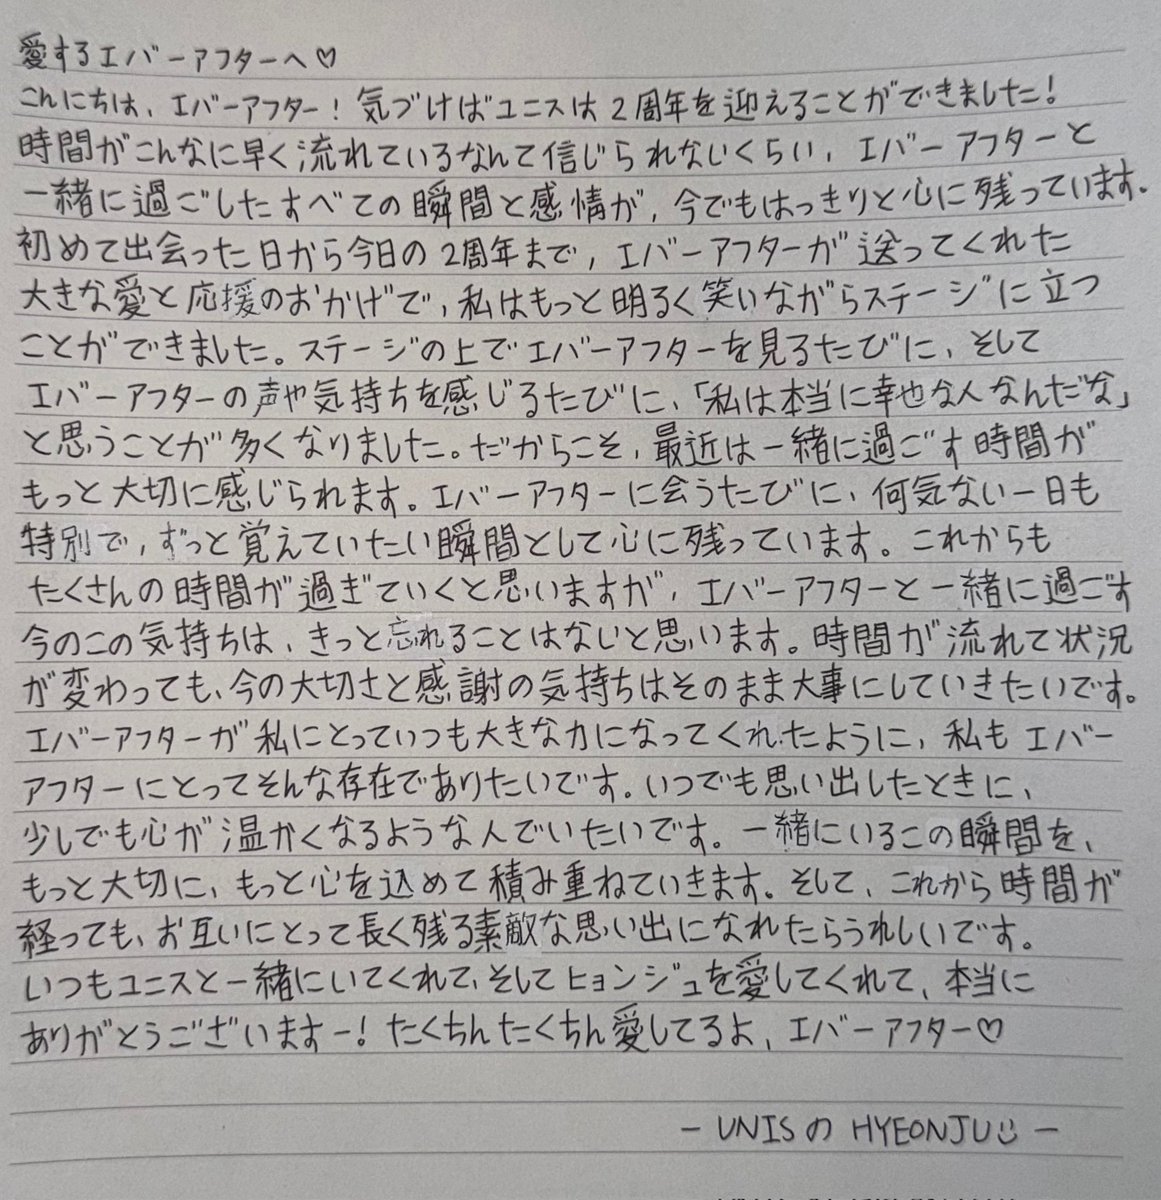 愛するエバーアフターへ♡
こんにちは、エバーアフター！気づけばユニスは2周年を迎えることができました！
時間がこんなに早く流れているなんて信じられないくらい、エバーアフターと
一緒に過ごしたすべての瞬間と感情が、今でもはっきりと心に残っています。
初めて出会った日から今日の2周年まで、エバーアフターが送ってくれた
大きな愛と応援のおかげで、私はもっと明るく笑いながらステージに立つ
ことができました。ステージの上でエバーアフターを見るたびに、そして
エバーアフターの声や気持ちを感じるたびに、「私は本当に幸せな人なんだな」
と思うことが多くなりました。だからこそ、最近は一緒に過ごす時間が
もっと大切に感じられます。エバーアフターに会うたびに、何気ない一日も
特別で、ずっと覚えていたい瞬間として心に残っています。これからも
たくさんの時間が過ぎていくと思いますが、エバーアフターと一緒に過ごす
今のこの気持ちは、きっと忘れることはないと思います。時間が流れて状況
が変わっても、今の大切さと感謝の気持ちはそのまま大事にしていきたいです。
エバーアフターが私にとっていつも大きな力になってくれたように、私もエバー
アフターにとってそんな存在でありたいです。いつでも思い出したときに、
少しでも心が温かくなるような人でいたいです。一緒にいるこの瞬間を、
もっと大切に、もっと心を込めて積み重ねていきます。そして、これから時間が
経っても、お互いにとって長く残る素敵な思い出になれたらうれしいです。
いつもユニスと一緒にいてくれて、そしてヒョンジュを愛してくれて、本当に
ありがとうございますー！たくちんたくちん愛してるよ、エバーアフター♡
- UNISの HYEONJU -